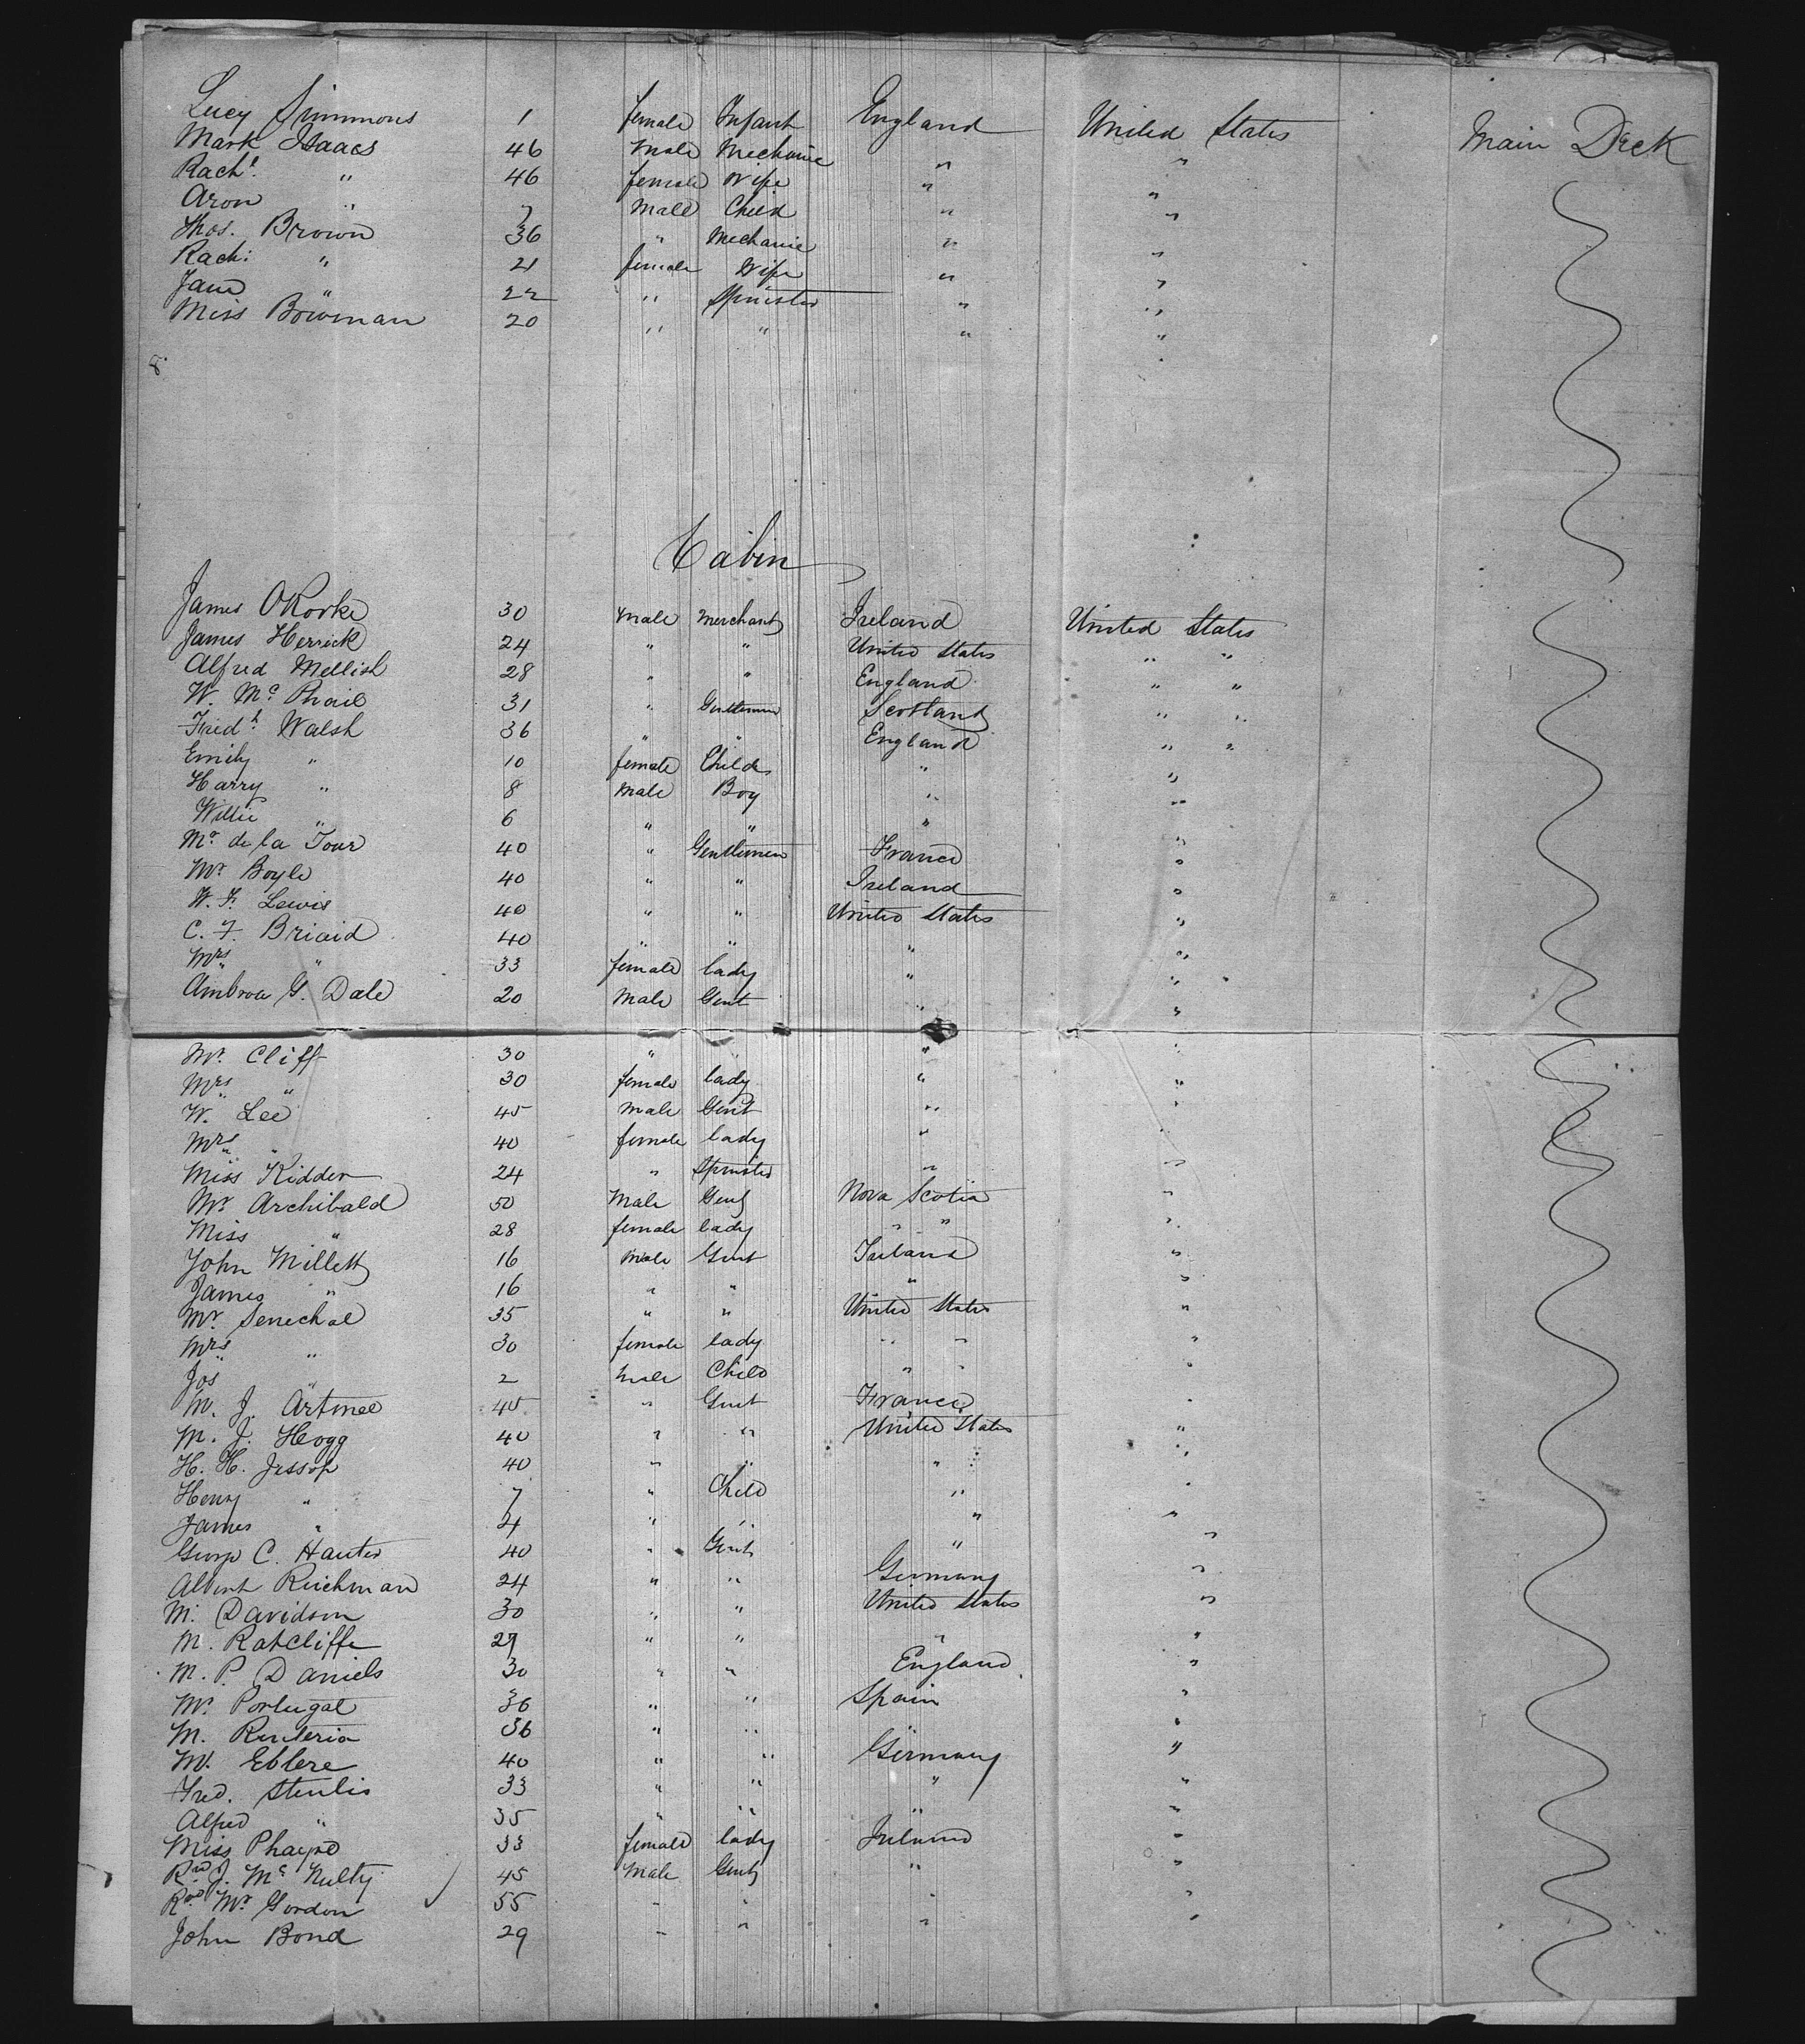 Lucy Simmons 1 female Infant England United States Main Deck
Mark Isaacs 46 Male Mechanic " "
Rachl. " 46 female Wife " "
Aron " 7 Male Child " "
Thos. Brown 36 " Mechanic " "
Rach: " 21 female Wife " "
Jane " 22 " Spinster " "
Miss Bowman 20 " " " "
8
Cabin
James ORorke 30 Male Merchant Ireland United States
James Herrick 24 " " United States " "
Alfred Mellish 28 " " England " "
W. Mc Phail 31 " Gentleman Scotland " "
Fredk. Walsh 36 " " England " "
Emily " 10 female Child " "
Harry " 8 Male Boy " "
Willie " 6 " " " "
Mr. de la Tour 40 " Gentlemen France "
Mr. Boyle 40 " " Ireland "
W. F. Lewis 40 " " United States "
C. F. Briaid 40 " " " "
Mrs " 33 female lady " "
Ambrose G. Dale 20 Male Gent " "
Mr. Cliff 30 " " " "
Mrs " 30 female lady " "
W. Lee 45 Male Gent " "
Mrs " 40 female lady " "
Miss Kidder 24 " Spinster " "
Mr. Archibald 50 Male Gent Nova Scotia "
Miss " 28 female lady " " "
John Millett 16 Male Gent Ireland "
James " 16 " " " "
Mr. Senechal 35 " " United States "
Mrs " 30 female lady " " "
Jos " 2 Male Child " " "
M. J. Artmee 45 " Gent France "
M. J. Hogg 40 " " United States "
H. H. Jessop 40 " " " "
Henry " 7 " Child " "
James " 4 " " " "
George C. Hauter 40 " Gent " "
Albert Reichman 24 " " Germany "
M. Davidson 30 " " United States "
M. Ratcliffe 29 " " " "
M. P. Daniels 30 " " England "
Mr. Portugal 36 " " Spain "
M. Renteria 36 " " " "
M. Eblere 40 " " Germany "
Fred. Stenlis 33 " " " "
Alfred " 35 " " " "
Miss 33 female lady Ireland "
Revd J. Mc Nulty 45 Male Gent " "
Revd Mr Gordon 55 " " " "
John Bond 29 " " " "